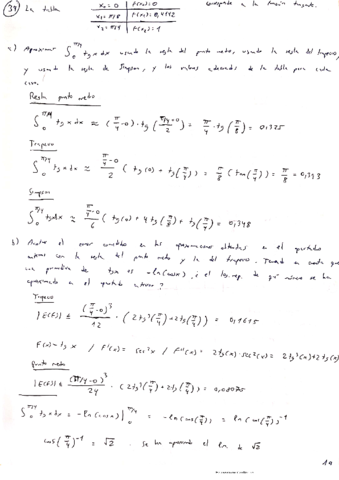 39) La tabla x₀ = 0 | F(x₀) = 0 corresponde a la función tangente.
x₁ = π/8 | F(x₁) = 0,4142
x₂ = π/4 | F(x₂) = 1
a) Aproximar ∫₀^{π/4} tg x dx usando la regla del punto medio, usando la regla del trapecio,
y usando la regla de Simpson, y los valores adecuados de la tabla para cada
caso.
Regla punto medio
∫₀^{π/4} tg x dx ≈ (π/4 - 0) · tg((π/4 + 0)/2) = π/4 · tg(π/8) = 0,325
Trapecio
∫₀^{π/4} tg x dx ≈ (π/4 - 0)/2 (tg(0) + tg(π/4)) = π/8 (tan(π/4)) = π/8 = 0,393
Simpson
∫₀^{π/4} tg x dx ≈ (π/4 - 0)/6 (tg(0) + 4 tg(π/8) + tg(π/4)) = 0,348
b) el error cometido en las aproximaciones obtenidas en el apartado
con la regla del punto medio y la del trapecio. Teniendo en cuenta que
una primitiva de tg x es -ln(cos x), ¿el log. nep. de qué número se ha
aproximado en el apartado anterior?
Trapecio
|E(F)| ≤ (π/4 - 0)³/12 · (2tg³(π/4) + 2tg(π/4)) = 0,1615
F(x) = tg x / F'(x) = sec² x / F''(x) = 2tg(x) · sec²(x) = 2tg³(x) + 2tg(x)
Punto medio
|E(F)| ≤ (π/4 - 0)³/24 · (2tg³(π/4) + 2tg(π/4)) = 0,08075
∫₀^{π/4} tg x dx = -ln(cos x)|₀^{π/4} = -ln(cos(π/4)) = ln(cos(π/4))⁻¹
cos(π/4)⁻¹ = √2 . Se ha aproximado el ln de √2
19